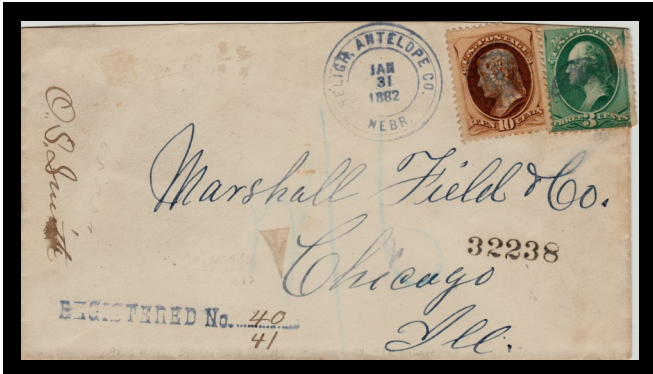 C. S. Smith
NELIGH, ANTELOPE CO.
JAN
31
1882
NEBR.
U.S. POSTAGE
TEN 10 CENTS
U.S. POSTAGE
THREE 3 CENTS
Marshall Field & Co.
32238
Chicago
Ill.
REGISTERED No. 40
41